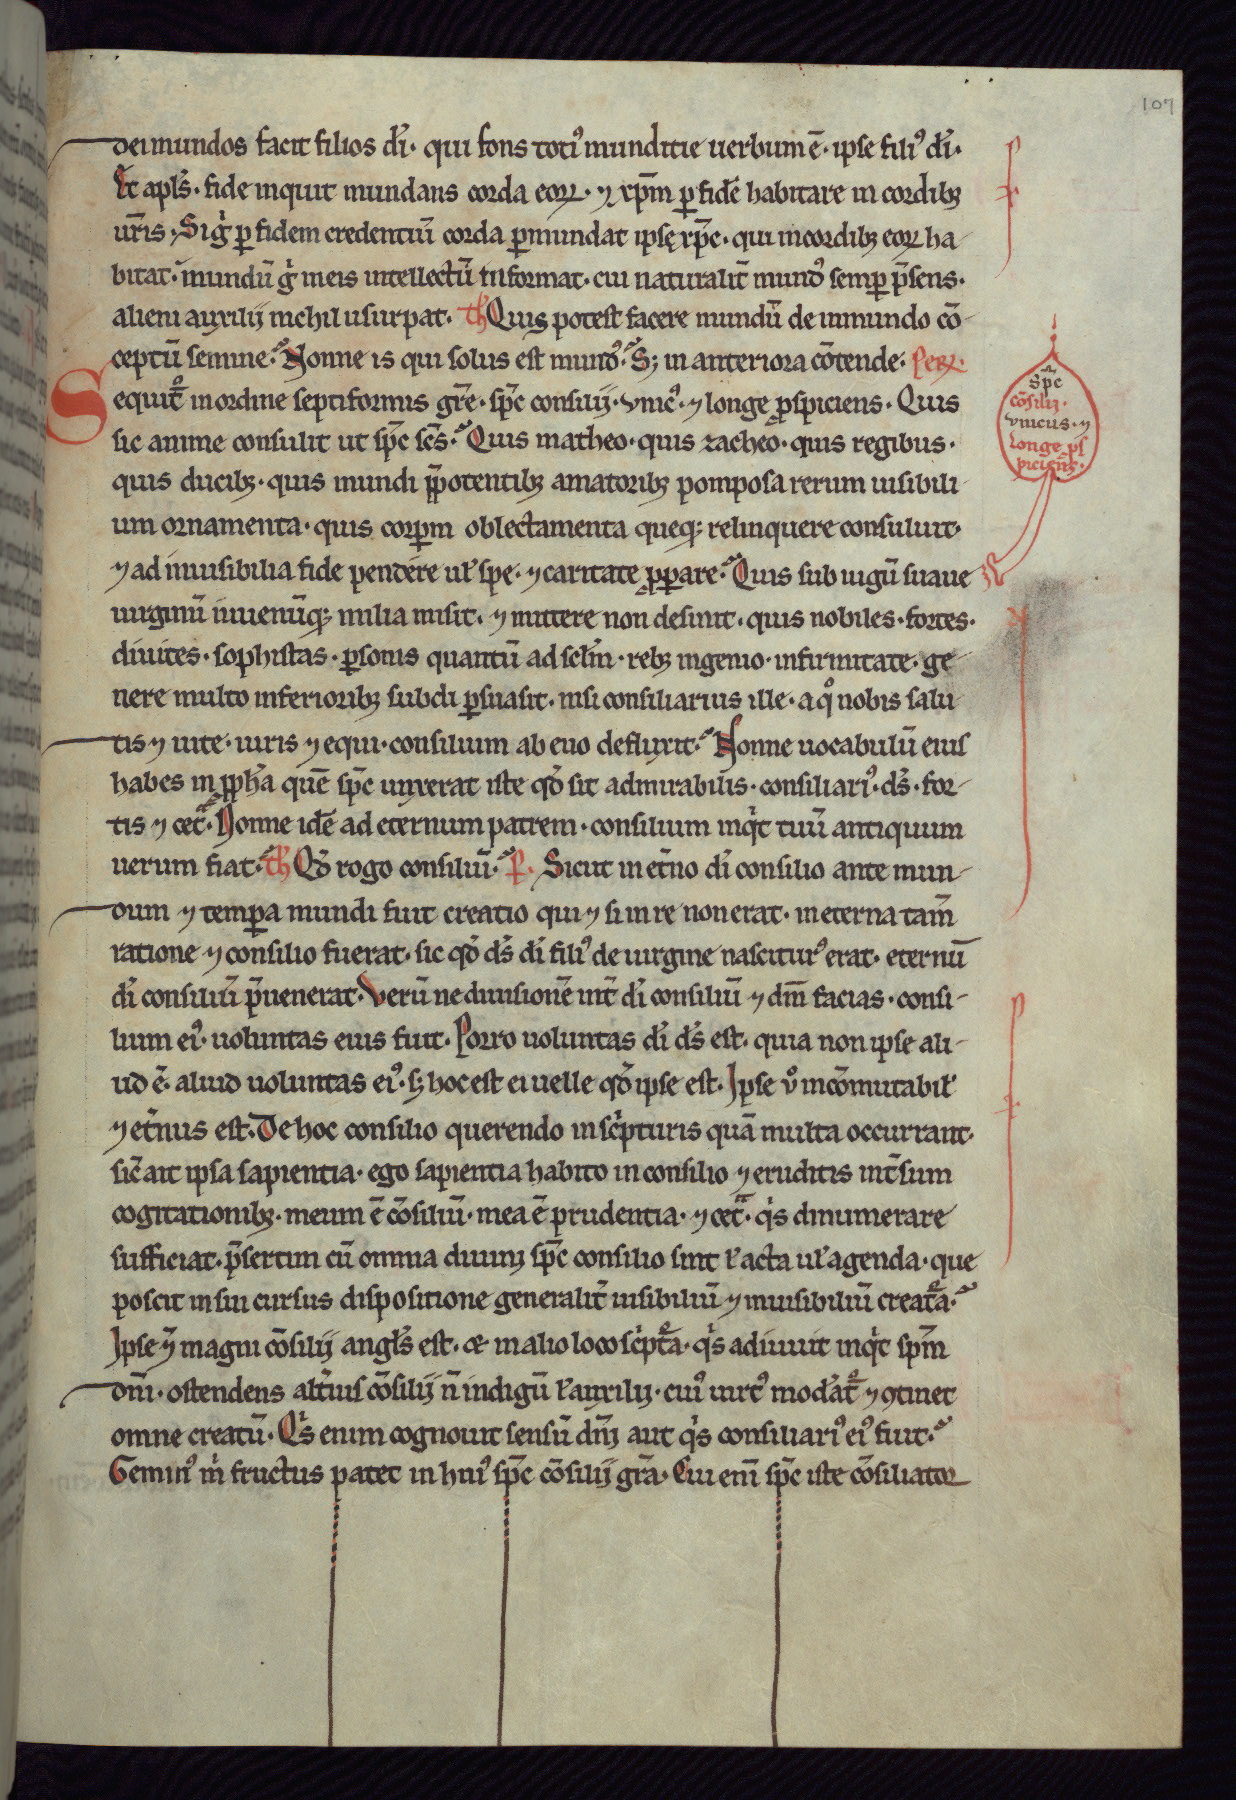 107
dei mundos facit filios dī· qui fons totiꝰ munditie uerbum ē· ipse filiꝰ dī·
Et apl̄s· fide inquit mundans corda eoꝝ· ⁊ xp̄m ꝑ fidē habitare in cordib;
ur̄is· Sig̊ ꝑ fidem credentiū corda ꝑmundat ipsę xp̄c· qui in cordib; eoꝝ ha-
bitat· mundū g̊ meis intellectū informat· cui naturalit̄ mundꝰ semꝑ p̄sens·
alieni auxilij nichil usurpat· Th̄ Quis potest facere mundū de inmundo cō-
ceptū semine· Nonne is qui solus est mundꝰ· S; in anteriora cōtende· Peꝝ·
Sequit᷑ in ordine septiformis gr̄e· sp̄c consilij· vnicꝰ· ⁊ longe ꝓspiciens· Quis
sic anime consulit ut sp̄c sc̄s· Quis matheo· quis zacheo· quis regibus·
quis ducib;· quis mundi p̄potentib; amatorib; pomposa rerum uisibili-
um ornamenta· quis corꝑm oblectamenta queq; relinquere consuluit·
⁊ ad inuisibilia fide pendere ul̄ spe· ⁊ caritate ꝓꝑare· Quis sub iugū suaue
uirginū iuuenūq; milia misit· ⁊ mittere non desinit· quis nobiles· fortes·
diuites· sophistas· ꝑsonis quantū ad sclm̄· reb; ingenio· infirmitate· ge-
nere multo inferiorib; subdi ꝑsuasit· nisi consiliarius ille· a q̊ nobis salu-
tis ⁊ uite· iuris ⁊ equi· consilium ab euo defluxit· Nonne uocabulū eius
habes in ꝓph̄a quē sp̄c unxerat iste qd̄ sit admirabilis· consiliariꝰ· ds̄· for-
tis ⁊ cet̄· Nonne idē ad eternum patrem· consilium inq̇t tuū antiquum
uerum fiat· Th̄ Qd̄ rogo consiliū· P· Sicut in et̄no dī consilio ante mun-
dum ⁊ temꝑa mundi fuit creatio qui ⁊ si in re non erat· in eterna tam̄
ratione ⁊ consilio fuerat· sic qd̄ ds̄ dī filiꝰ de uirgine nasciturꝰ erat· eternū
dī consiliū p̄uenerat· Verū ne diuisionē int̄ dī consiliū ⁊ dm̄ facias· consi-
lium eiꝰ· uoluntas eius fuit· Porro uoluntas dī ds̄ est· quia non ipse ali-
ud ē· aliud uoluntas eiꝰ· s; hoc est ei uelle qd̄ ipse est· Ipse u̇o incōmutabil̄
⁊ et̄nus est· De hoc consilio querendo in sċpturis quā multa occurrant·
sic̄ ait ipsa sapientia· ego sapientia habito in consilio ⁊ eruditis int̄sum
cogitationib;· meum ē cōsiliū· mea ē prudentia· ⁊ cet̄· q̇s dinumerare
sufficiat· p̄sertim cū omnia diuini sp̄c consilio sint l̄ acta ul̄ agenda· que
poscit in sui cursus dispositione generalit̄ uisibiliū ⁊ inuisibiliū creat᷑a·
Ipse ⁊ magni cōsilij angl̄s est· & in alio loco sċpt᷑a· q̇s adiuuit inq̇t spm̄
dn̄i· ostendens alt̄ius cōsilij n̄ indigū l̄ auxilij· cuiꝰ uirtꝰ mod̄at᷑ ⁊ ꝯtinet
omne creatū· Q̇s enim cognouit sensū dn̄i aut q̇s consiliariꝰ eiꝰ fuit·
Geminꝰ m̊ fructus patet in huiꝰ sp̄c cōsilij gr̄a· Cui eni̅ sp̄c iste cōsiliator
sp̄c
cōsilij·
vnicus· ⁊
longe ꝓs
piciens·